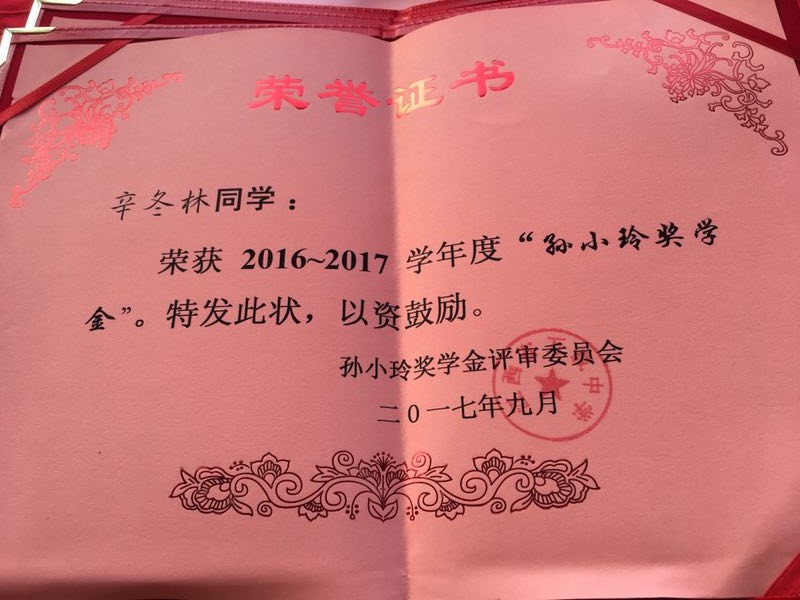 荣誉证书
辛冬林同学：
荣获 2016~2017 学年度“孙小玲奖学
金”。特发此状，以资鼓励。
孙小玲奖学金评审委员会
二0一七年九月